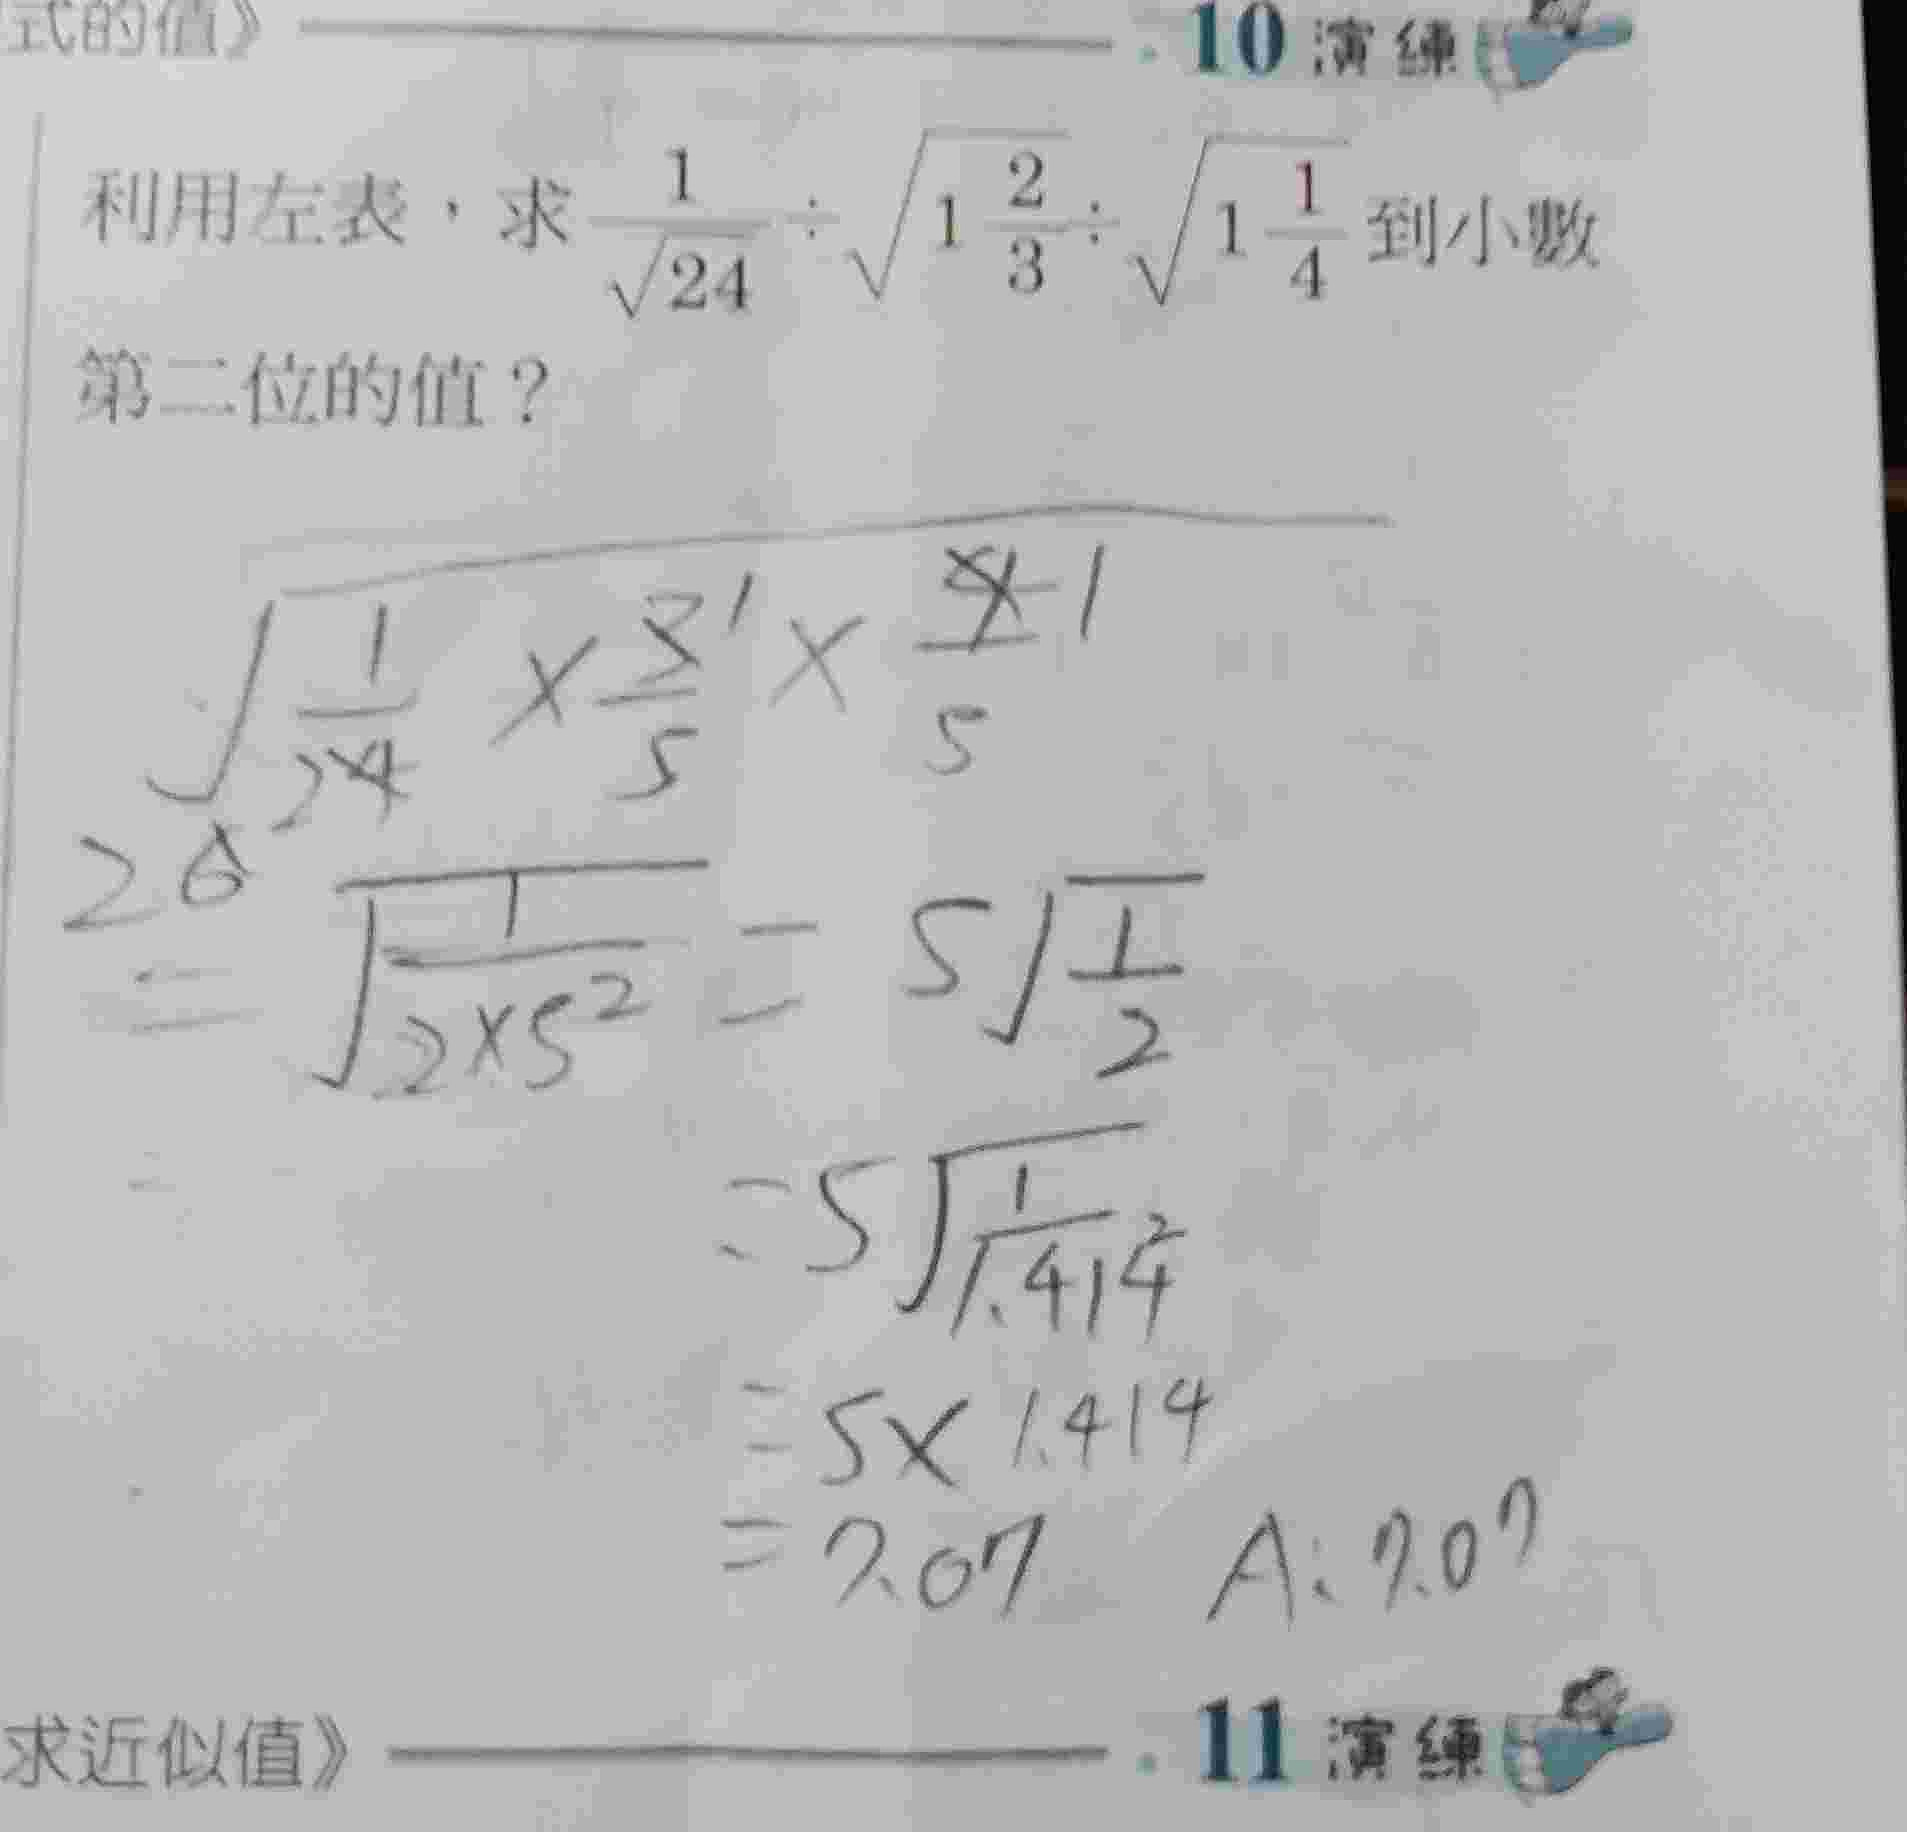 式的值》 10 演練
利用左表，求 1/√24 ÷ √(1 2/3) ÷ √(1 1/4) 到小數
第二位的值？
√(1/24 × 3/5 × 4/5) 1 1
2 6
= √(1/(2×5²)) = 5√(1/2)
= 5√(1/1.414²)
= 5×1.414
= 7.07 A: 7.07
求近似值》 11 演練